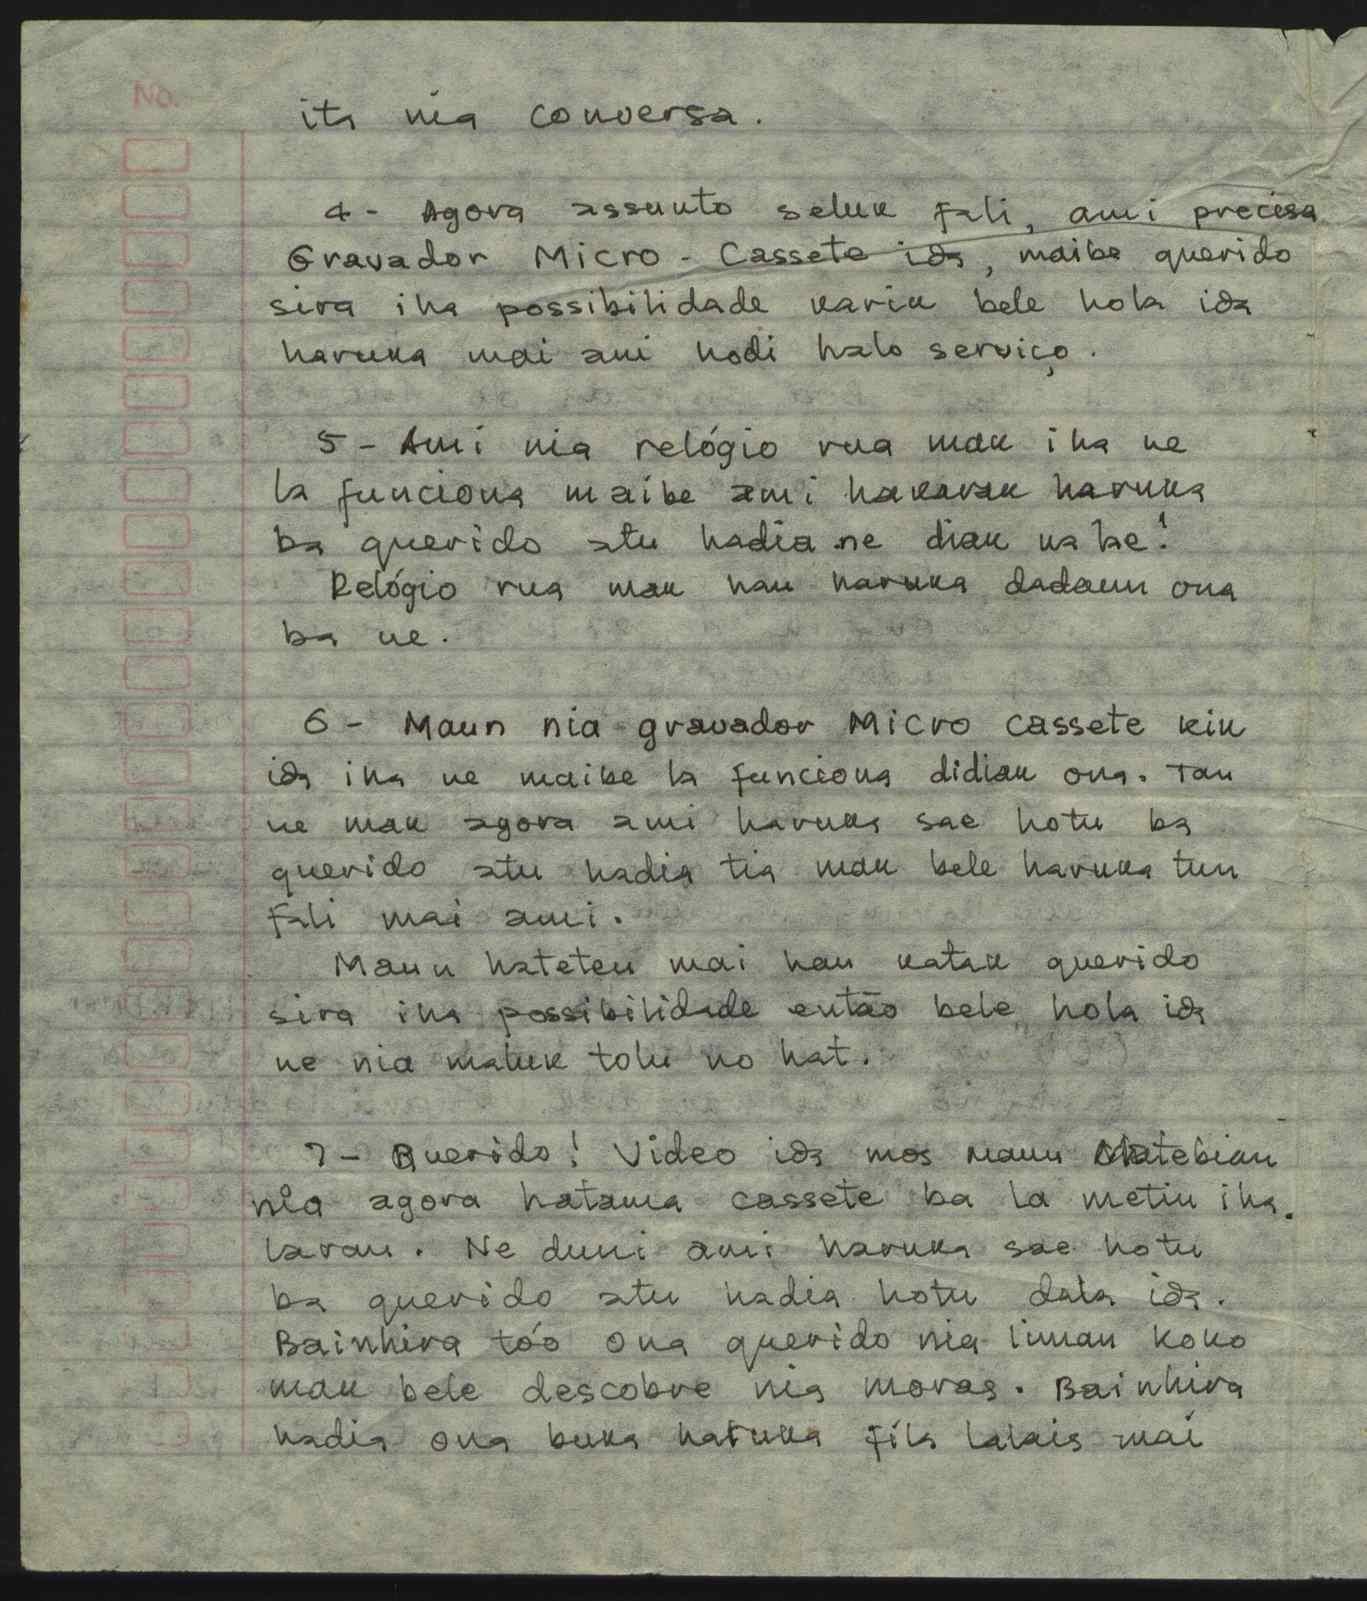 No.
ita nia conversa.
4- Agora assunto seluk fali, ami precisa
Gravador Micro-Cassete ida, maibe querido
sira iha possibilidade karik bele hola ida
haruka mai ami hodi halo serviço.
5- Ami nia relógio rua mak iha ne
la funciona maibe ami hakarak haruka
ba querido atu hadia ne diak ka lae!
Relógio rua mak hau haruka dadaun ona
ba ne.
6- Maun nia gravador Micro cassete kik
ida iha ne maibe la funciona didiak ona. Tan
ne mak agora ami haruka sae hotu ba
querido atu hadia tia mak bele haruka tun
fali mai ami.
Maun hateten mai hau katak querido
sira iha possibilidade então bele hola ida
ne nia maluk tolu no hat.
7- Querido! Video ida mos Maun Matebian
nia agora hatama cassete ba la metin iha
laran. Ne duni ami haruka sae hotu
ba querido atu hadia hotu dala ida.
Bainhira tóo ona querido nia liman koko
mak bele descobre nia moras. Bainhira
hadia ona buka haruka fila lalais mai